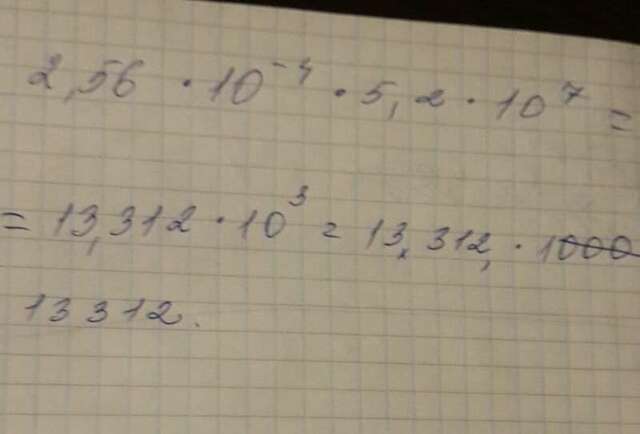 2,56 · 10⁻⁴ · 5,2 · 10⁷ =
= 13,312 · 10³ = 13,312, · 1000
13312.